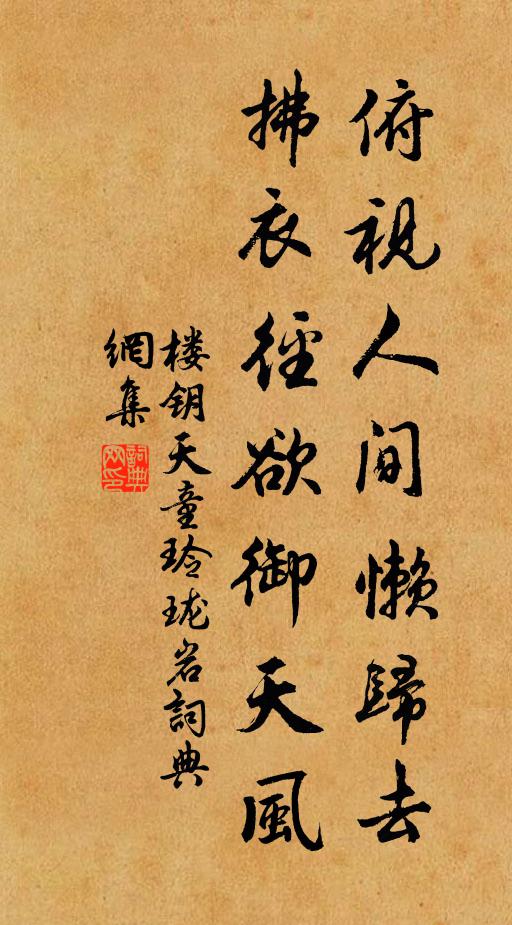 俯視人间懒歸去
拂衣徑欲御天風
楼钥天童玲珑岩詞典
網集
詞典
网印